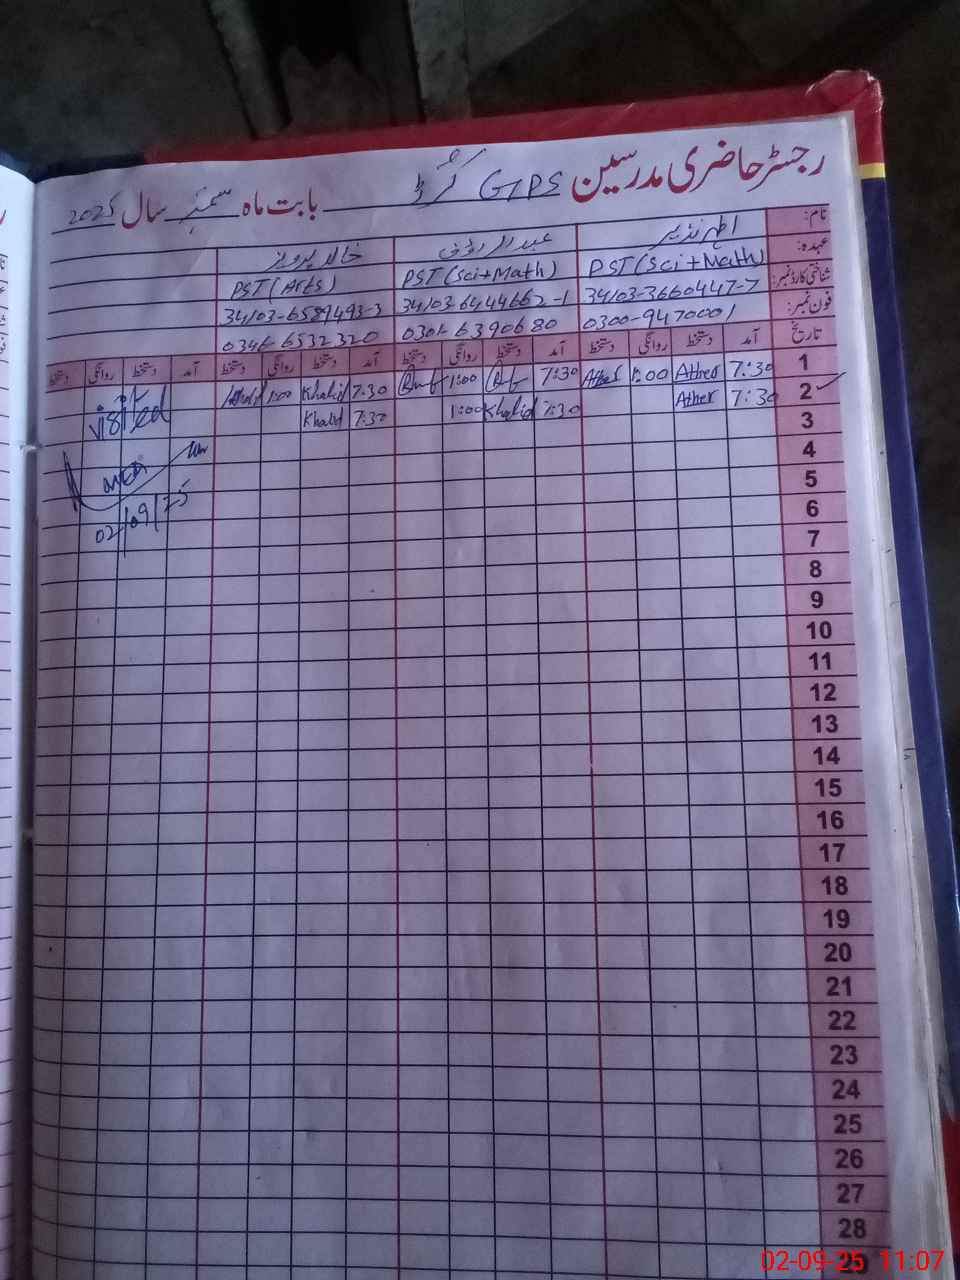 رجسٹر حاضری مدرسین GPS بابت ماہ ستمبر سال 2025
نام: اطہر نذیر عبدالرؤف خالد پرویز
عہدہ: PST (Sci + Math) PST (Sci + Math) PST (Arts)
شناختی کارڈ نمبر: 34103-3660447-7 34103-6444662-1 34103-6589493-3
فون نمبر: 0300-9470001 0301-6390680 0346-6532320
تاریخ آمد دستخط روانگی دستخط آمد دستخط روانگی دستخط آمد دستخط روانگی دستخط آمد دستخط روانگی دستخط
1 7:30 Ather 1:00 Ather 7:30 1:00 7:30 Khalid 1:00 Khalid
2 7:30 Ather 7:30 Khalid 1:00 7:30 Khalid
visited
3
4
5
02/09/25
6
7
8
9
10
11
12
13
14
15
16
17
18
19
20
21
22
23
24
25
26
27
28
02-09-25 11:07